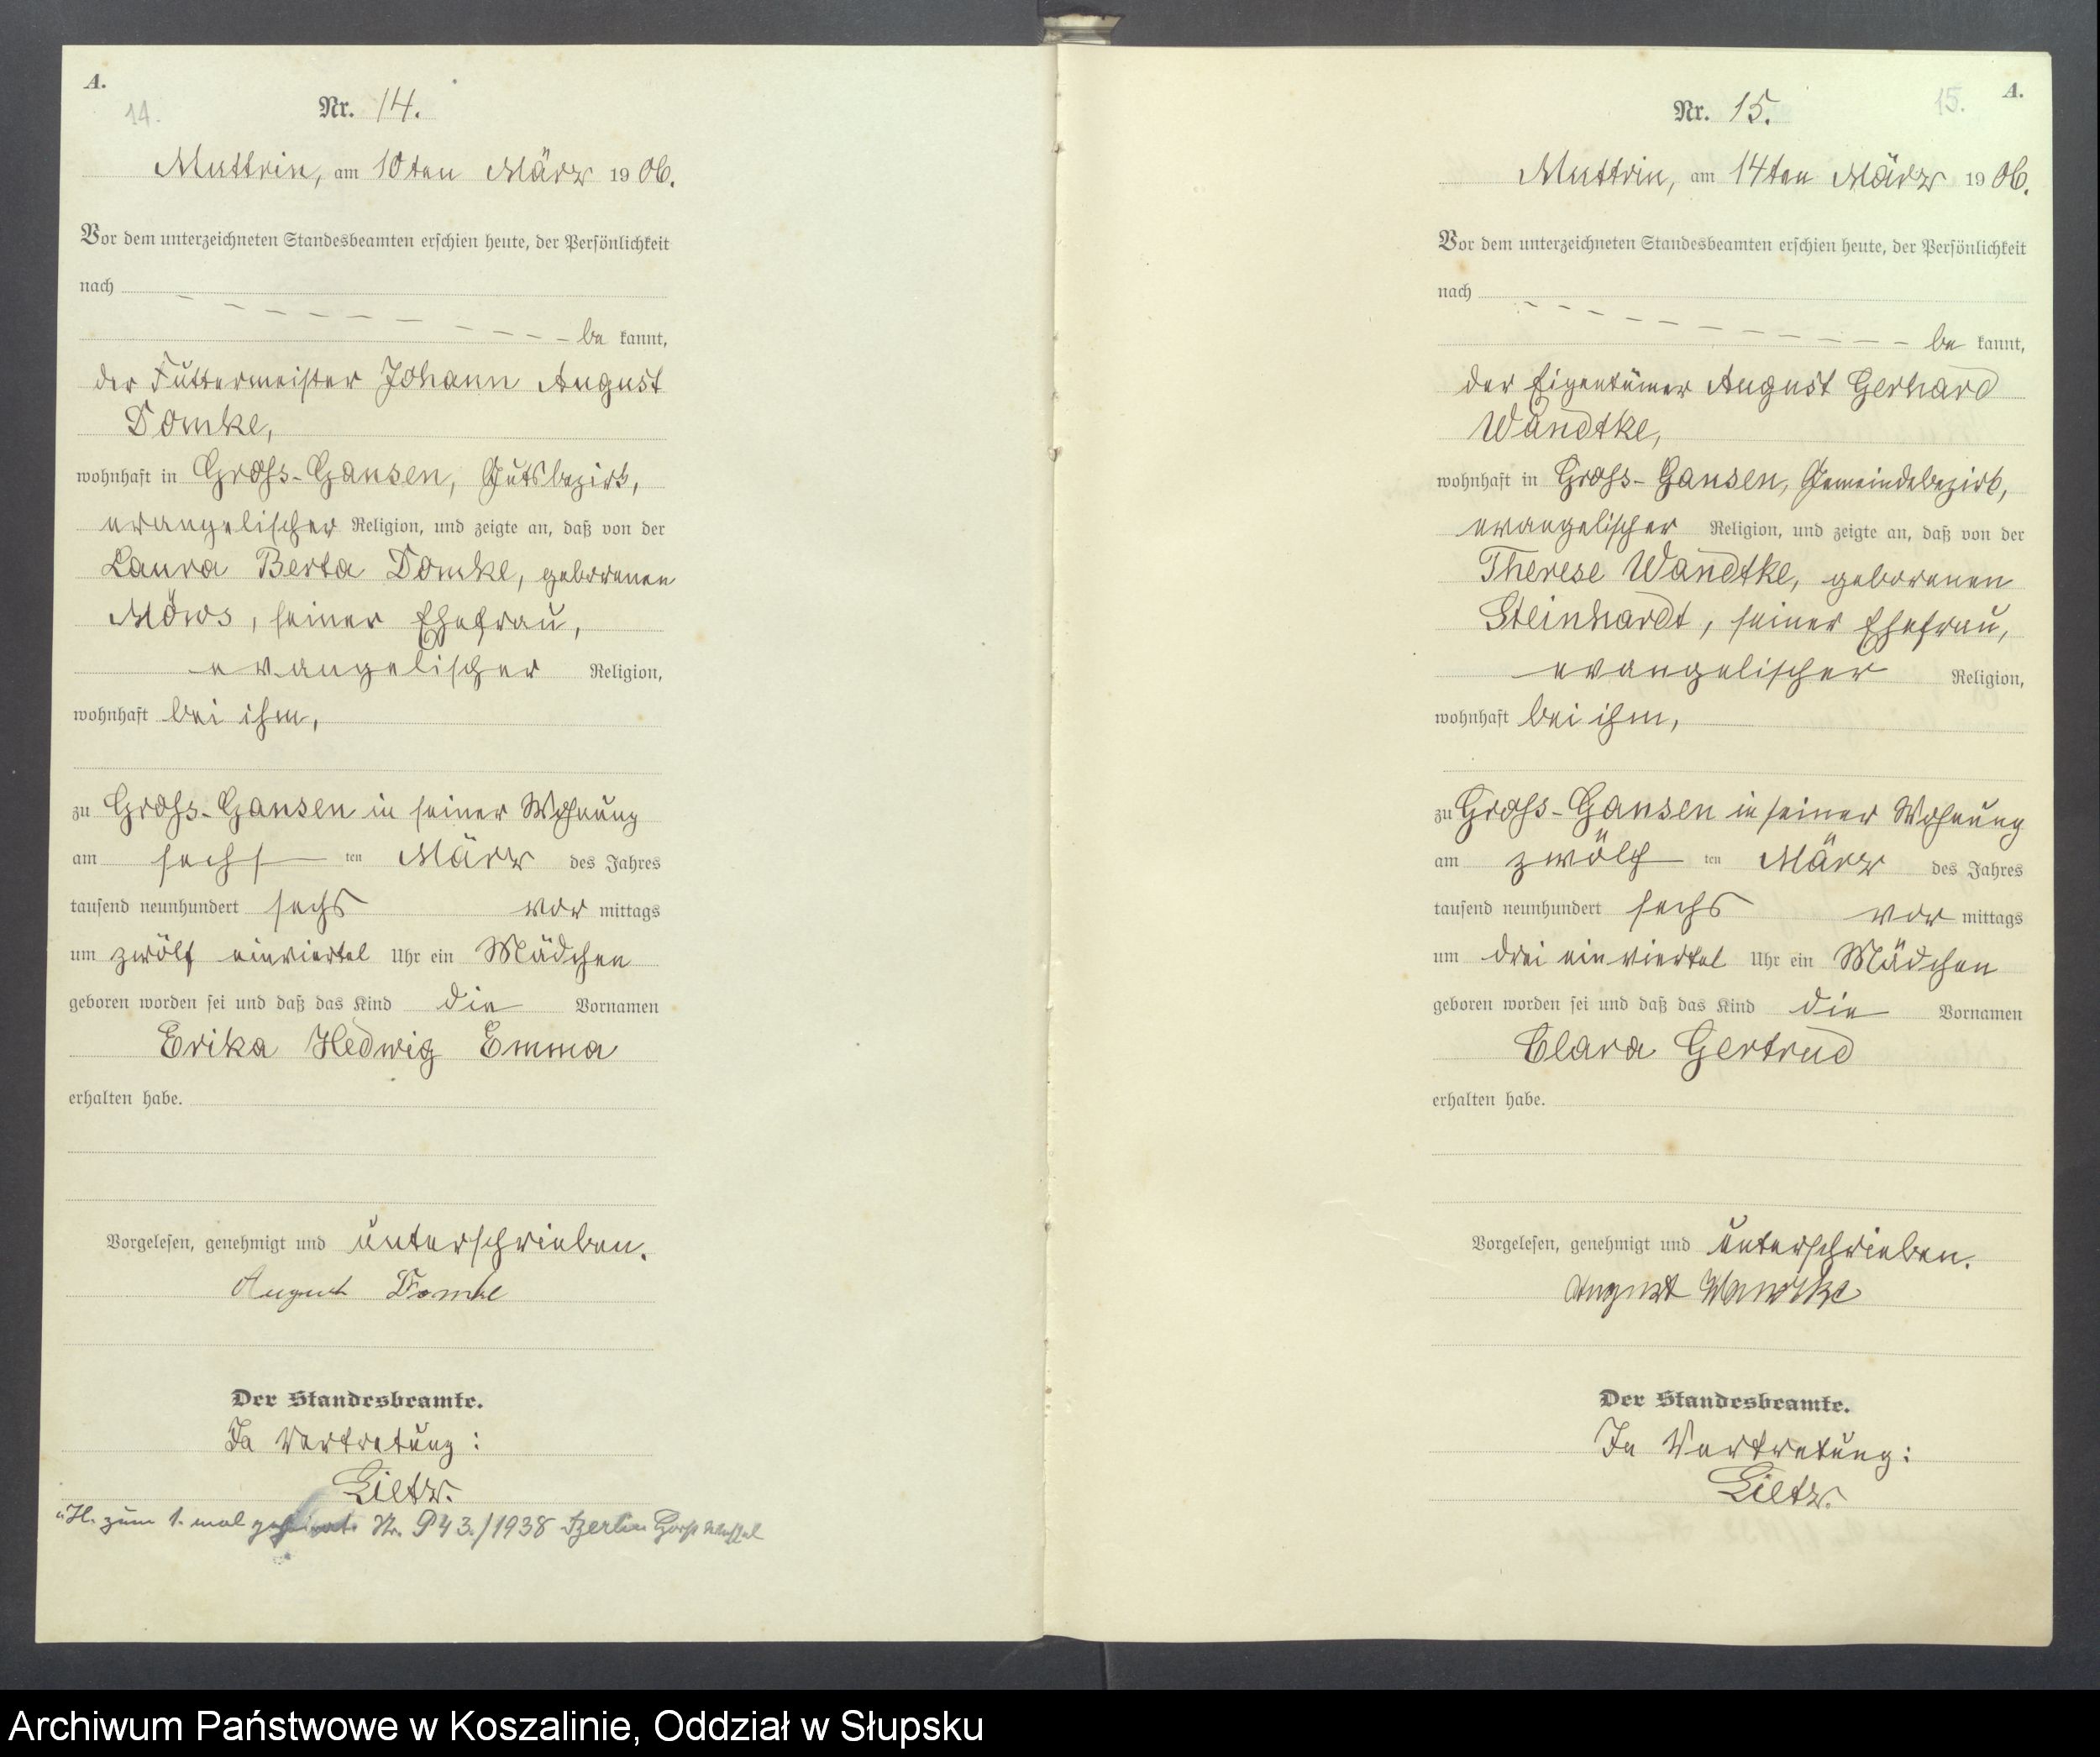 A.
14.
Nr. 14.
Muttrin, am 10ten März 1906.
Vor dem unterzeichneten Standesbeamten erschien heute, der Persönlichkeit
nach
be kannt,
der Futtermeister Johann August
Domke,
wohnhaft in Gross-Gansen, Gutsbezirk,
evangelischer Religion, und zeigte an, daß von der
Laura Berta Domke, geborenen
Möws, seiner Ehefrau,
evangelischer Religion,
wohnhaft bei ihm,
zu Gross-Gansen in seiner Wohnung
am sechsten März des Jahres
tausend neunhundert sechs vor mittags
um zwölf einviertel Uhr ein Mädchen
geboren worden sei und daß das Kind die Vornamen
Erika Hedwig Emma
erhalten habe.
Vorgelesen, genehmigt und unterschrieben.
August Domke
Der Standesbeamte.
In Vertretung:
Lietz.
H. zum 1. mal geheirat. Nr. 943./1938 Berlin Horst Wessel
A.
15.
Nr. 15.
Muttrin, am 14ten März 1906.
Vor dem unterzeichneten Standesbeamten erschien heute, der Persönlichkeit
nach
be kannt,
der Eigentümer August Gerhard
Wandtke,
wohnhaft in Gross-Gansen, Gemeindebezirk,
evangelischer Religion, und zeigte an, daß von der
Therese Wandtke, geborenen
Steinhardt, seiner Ehefrau,
evangelischer Religion,
wohnhaft bei ihm,
zu Gross-Gansen in seiner Wohnung
am zwölften März des Jahres
tausend neunhundert sechs vor mittags
um drei einviertel Uhr ein Mädchen
geboren worden sei und daß das Kind die Vornamen
Clara Gertrud
erhalten habe.
Vorgelesen, genehmigt und unterschrieben.
August Wandtke
Der Standesbeamte.
In Vertretung:
Lietz.
Archiwum Państwowe w Koszalinie, Oddział w Słupsku